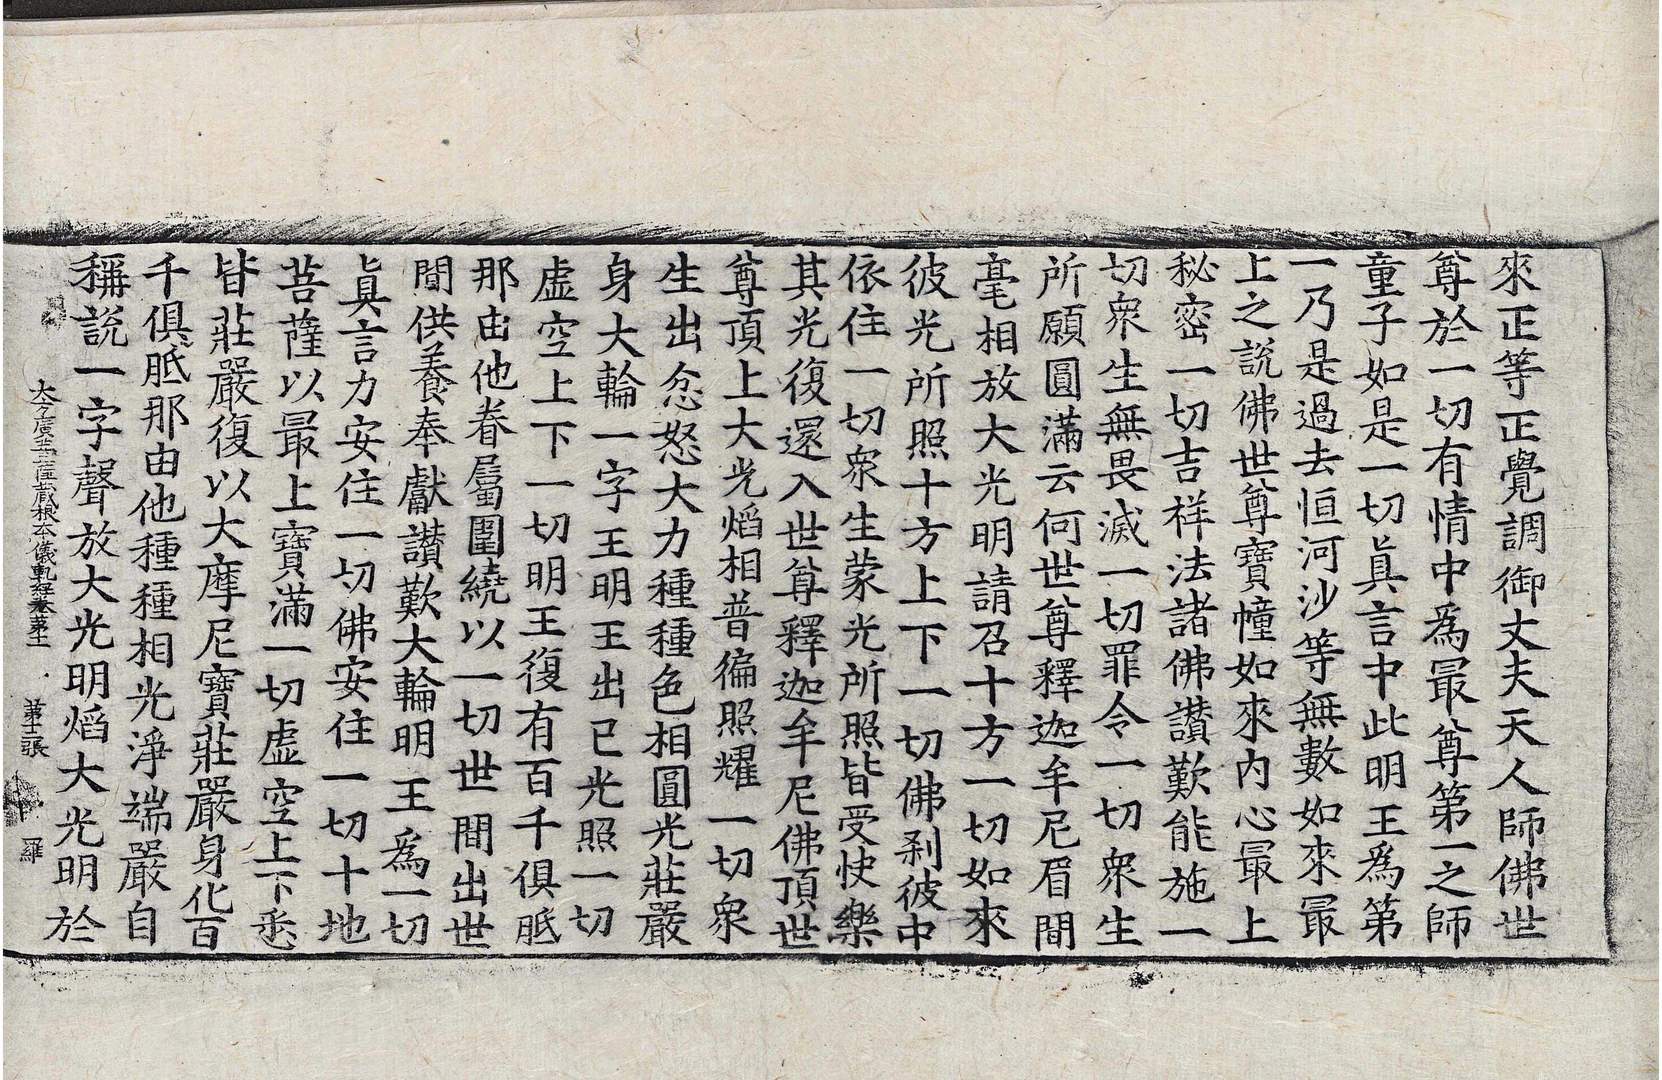 來正等正覺調御丈夫天人師佛世
尊於一切有情中為最尊第一之師
童子如是一切眞言中此明王為第
一乃是過去恒河沙等無數如來最
上之說佛世尊寶幢如來內心最上
秘密一切吉祥法諸佛讃歎能施一
切衆生無畏滅一切罪令一切衆生
所願圓滿云何世尊釋迦牟尼眉間
毫相放大光明請召十方一切如來
彼光所照十方上下一切佛刹彼中
依住一切衆生蒙光所照皆受快樂
其光復還入世尊釋迦牟尼佛頂世
尊頂上大光熖相普徧照耀一切衆
生出忿怒大力種種色相圓光莊嚴
身大輪一字王明王出已光照一切
虛空上下一切明王復有百千俱胝
那由他眷屬圍繞以一切世間出世
間供養奉獻讃歎大輪明王為一切
眞言力安住一切佛安住一切十地
菩薩以最上寶滿一切虛空上下悉
皆莊嚴復以大摩尼寶莊嚴身化百
千俱胝那由他種種相光淨端嚴自
稱說一字聲放大光明熖大光明於
大方廣菩薩藏根本儀軌經卷第十一 第十二張 羅